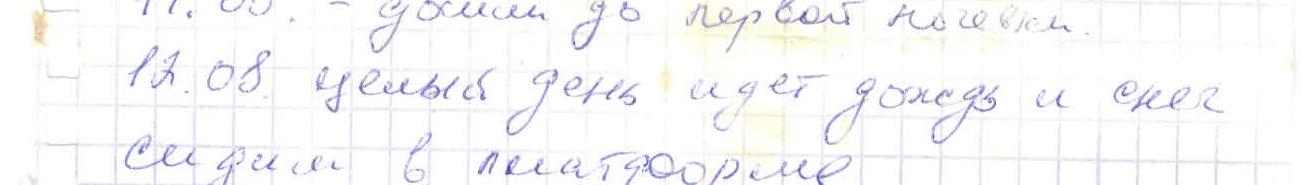 11.08. - дошли до первой ночевки.
12.08. целый день идет дождь и снег
сидим в платформе